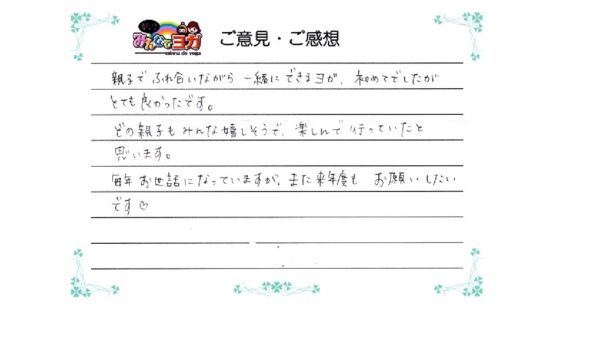 みんなでヨガ
minna de yoga
ご意見・ご感想
親子で ふれ合いながら 一緒にできるヨガ、初めてでしたが
とても良かったです。
どの親子も みんな嬉しそうで、楽しんで行っていたと
思います。
毎年 お世話になっていますが、また来年度も お願いしたい
です♡